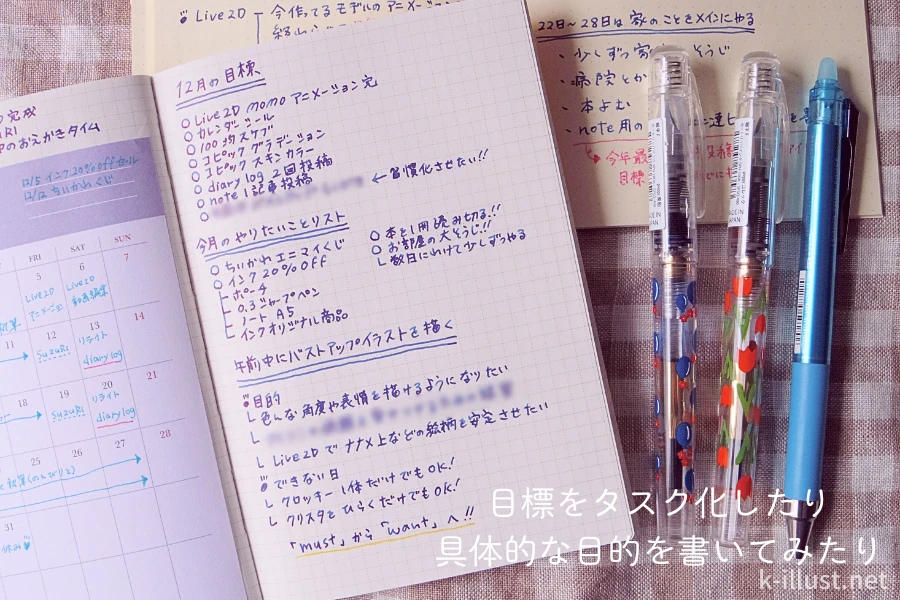 Live2D
今作ってるモデルのアニメーション
22日〜28日は家のことをメインにやる
・少しずつ
そうじ
・病院とか
・本よむ
・note用の
今年最
目標
完成
のおえかきタイム
12/5 インク20%offセール
12/12 ちいかわくじ
FRI SAT SUN
5 6 7
Live2D
Live2D
アニメーション
11 12 13 14
SUZURI
リライト
diary log
18 19 20 21
SUZURI
リライト
diary log
25 26 27 28
(のんびりと)
31
休み
12月の目標
○ Live2D momo アニメーション完
○ カレンダーシール
○ 100均スタンプ
○ コピック グラデーション
○ コピック スキンカラー
○ diary log 2回投稿
○ note 1記事投稿
← 習慣化させたい!!
○
今月のやりたいことリスト
○ ちいかわエニマイくじ
○ インク20%off
├ ポーチ
├ 0.3シャープペン
├ ノート A5
└ インクオリジナル商品
○ 本を1冊読み切る!!
○ お部屋の大そうじ!!
└ 数日にわけて少しずつやる
午前中にバストアップイラストを描く
目的
└ 色んな角度や表情を描けるようになりたい
└
└ Live2Dでナナメ上などの絵柄を安定させたい
できない日
└ クロッキー1体だけでもOK!
└ クリスタをひらくだけでもOK!
「must」から「want」へ!!
MADE IN JAPAN
目標をタスク化したり
具体的な目的を書いてみたり
k-illust.net